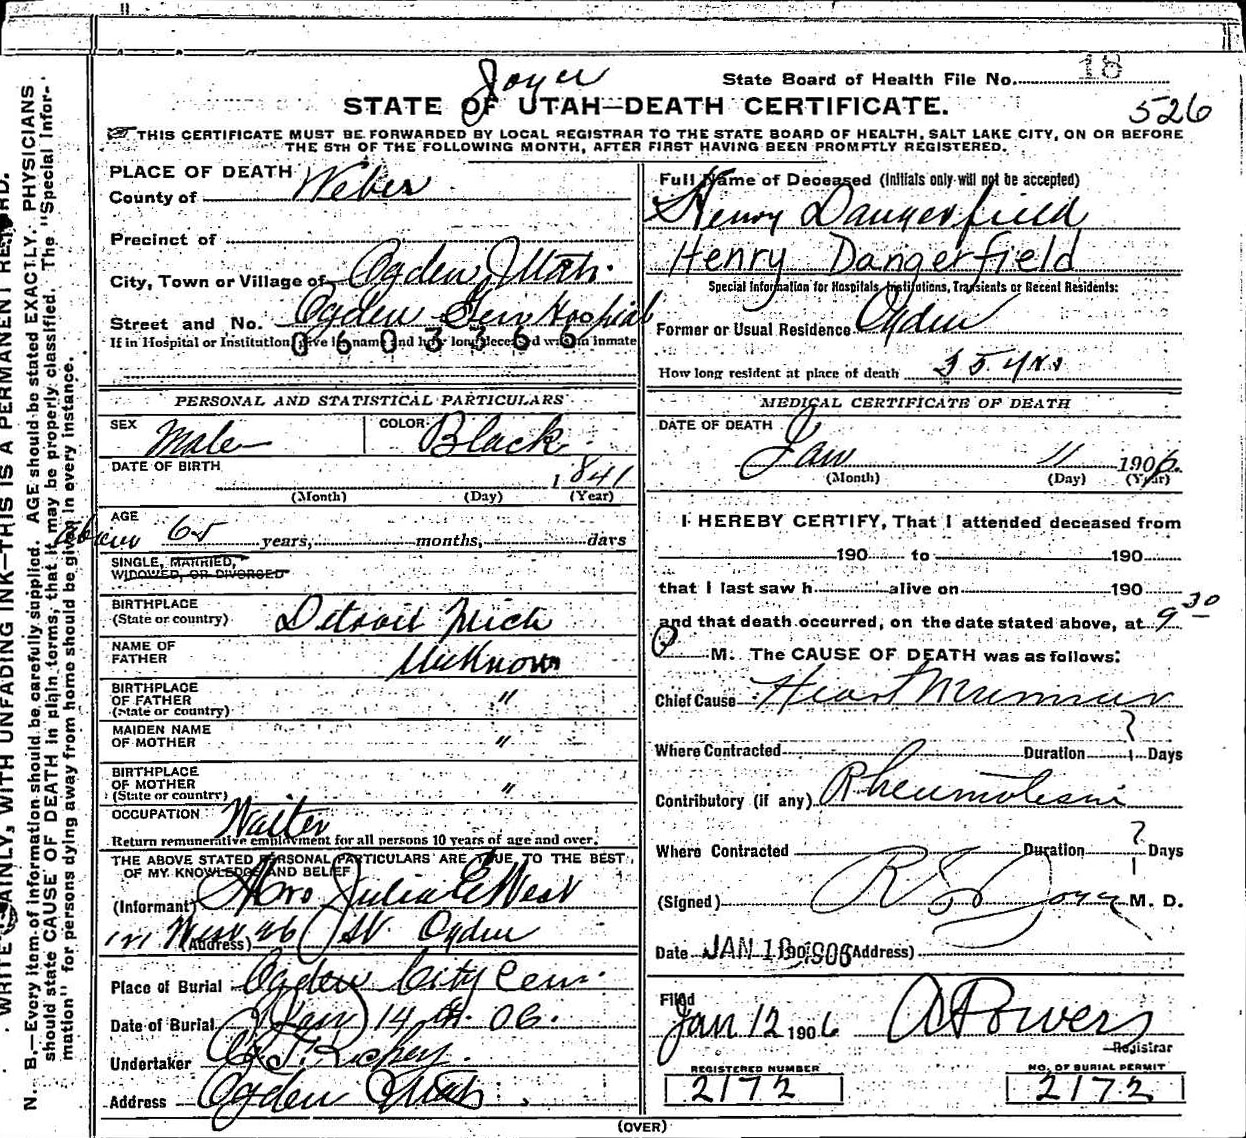 Joyce
State Board of Health File No. 18
STATE OF UTAH—DEATH CERTIFICATE.
526
THIS CERTIFICATE MUST BE FORWARDED BY LOCAL REGISTRAR TO THE STATE BOARD OF HEALTH, SALT LAKE CITY, ON OR BEFORE
THE 5TH OF THE FOLLOWING MONTH, AFTER FIRST HAVING BEEN PROMPTLY REGISTERED.
PLACE OF DEATH
County of Weber
Precinct of
City, Town or Village of Ogden, Utah.
Street and No. Ogden Gen Hospital
If in Hospital or Institution, give its name and how long deceased was an inmate
0603366
PERSONAL AND STATISTICAL PARTICULARS
SEX Male COLOR Black
DATE OF BIRTH 1841
(Month) (Day) (Year)
AGE
about 65 years, months, days
SINGLE, MARRIED,
WIDOWED, OR DIVORCED
BIRTHPLACE
(State or country) Detroit Mich
NAME OF
FATHER Unknown
BIRTHPLACE
OF FATHER "
(State or country)
MAIDEN NAME
OF MOTHER "
BIRTHPLACE
OF MOTHER "
(State or country)
OCCUPATION Waiter
Return remunerative employment for all persons 10 years of age and over.
THE ABOVE STATED PERSONAL PARTICULARS ARE TRUE TO THE BEST
OF MY KNOWLEDGE AND BELIEF
(Informant) Mrs Julia E West
(Address) West 26 St Ogden
Place of Burial Ogden City Cem.
Date of Burial Jan 14 06.
Undertaker Richey
Address Ogden Utah
Full Name of Deceased (Initials only will not be accepted)
Henry Dangerfield
Henry Dangerfield
Special Information for Hospitals, Institutions, Transients or Recent Residents:
Former or Usual Residence Ogden
How long resident at place of death 35 yrs
MEDICAL CERTIFICATE OF DEATH
DATE OF DEATH
Jan 11 1906.
(Month) (Day) (Year)
I HEREBY CERTIFY, That I attended deceased from
190 to 190
that I last saw h alive on 190
and that death occurred, on the date stated above, at 9 30
P M. The CAUSE OF DEATH was as follows:
Chief Cause Heart Murmur
?
Where Contracted Duration Days
Contributory (if any) Rheumatism
?
Where Contracted Duration Days
(Signed) Joyce M. D.
Date JAN (Address)
Filed
Jan 12 1906 A Powers
Registrar
REGISTERED NUMBER
2172
NO. OF BURIAL PERMIT
2172
(OVER)
WRITE PLAINLY, WITH UNFADING INK—THIS IS A PERMANENT RECORD.
N. B.—Every item of information should be carefully supplied. AGE should be stated EXACTLY. PHYSICIANS
should state CAUSE OF DEATH in plain terms, that it may be properly classified. The "Special Infor-
mation" for persons dying away from home should be given in every instance.